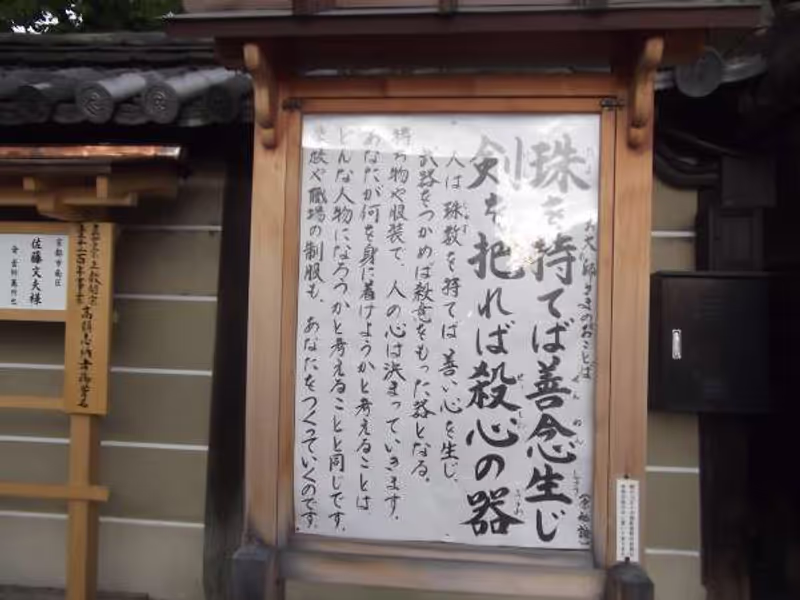 お大師さまのおことば
珠を持てば善念生じ
剣を把れば殺心の器
人は珠数を持てば善い心を生じ、
武器をつかめば殺意をもった器となる。
持ち物や服装で、人の心は決まっていきます。
あなたが何を身に着けようかと考えることは
どんな人物になろうかと考えることと同じです。
や職場の制服も、あなたをつくっていくのです。
京都市南区
佐藤文夫様